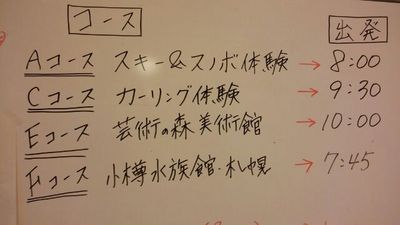 コース 出発
Aコース スキー&スノボ体験 → 8:00
Cコース カーリング体験 → 9:30
Eコース 芸術の森美術館 → 10:00
Fコース 小樽水族館・札幌 → 7:45